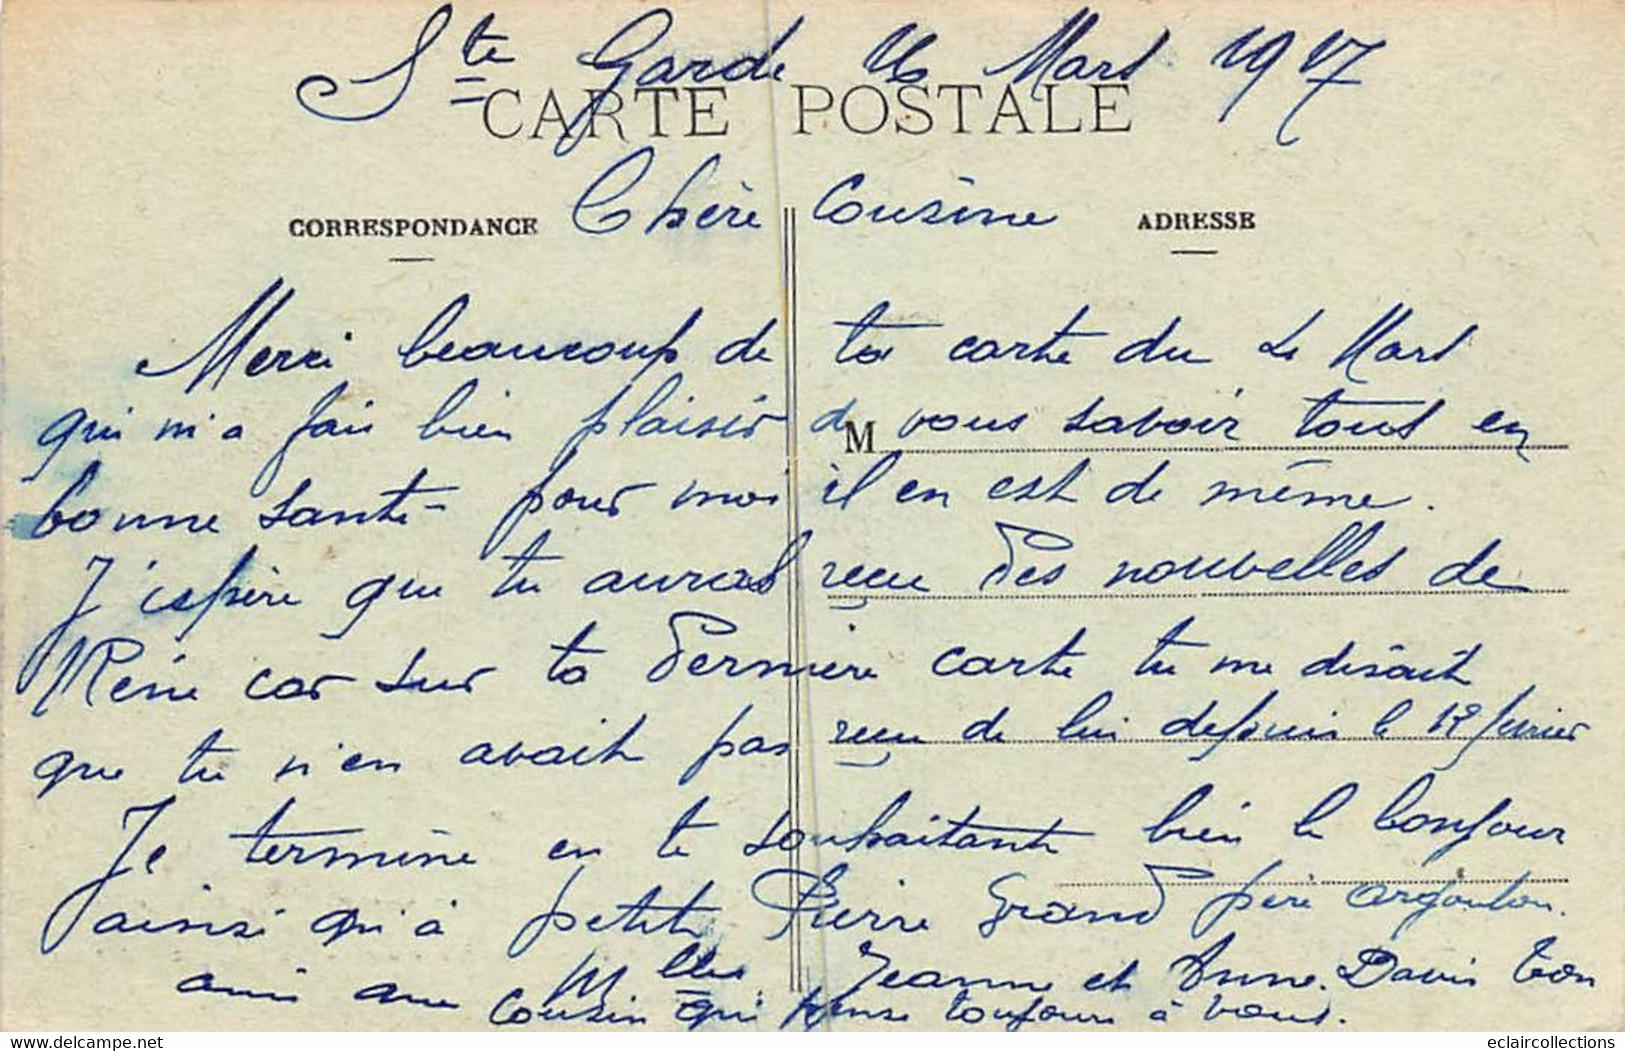 Ste Garde 16 Mars 1917
CARTE POSTALE
Chère Cousine
CORRESPONDANCE
ADRESSE
Merci beaucoup de ta carte du Mars
qui m'a fais bien plaisir de vous savoir tous en
M
bonne santé - pour moi il en est de même.
J'espère que tu auras reçu des nouvelles de
Réné car sur ta dernière carte tu me disait
que tu n'en avait pas reçu de lui depuis le 12 février
Je termine en te souhaitant bien le bonjour
ainsi qu'à petit Pierre Grand père argouton.
ainsi aux Mlles Jeanne et Anne. Davis ton
Cousin qui pense toujours à vous.
eclaircollections